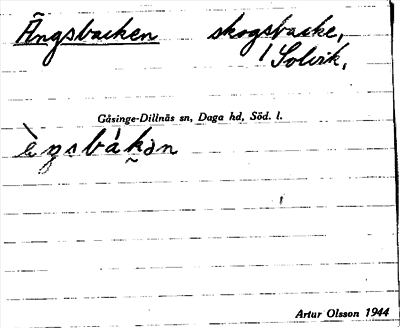 Ängsbacken skogsbacke,
/ Solvik.
Gåsinge-Dillnäs sn, Daga hd, Söd. l.
Artur Olsson 1944